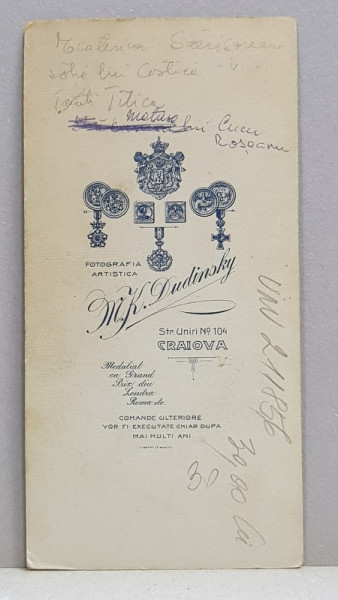 soția lui Costică " "
Tanti Titica
Matușa lui Cucu
Roșeanu
FOTOGRAFIA
ARTISTICA
M.K. Dudinsky
Str. Uniri No 104
CRAIOVA
Medaliat
cu Grand
Prix din
Londra
Roma etc.
COMANDE ULTERIORE
VOR FI EXECUTATE CHIAR DUPA
MAI MULTI ANI
30
39,00 lei